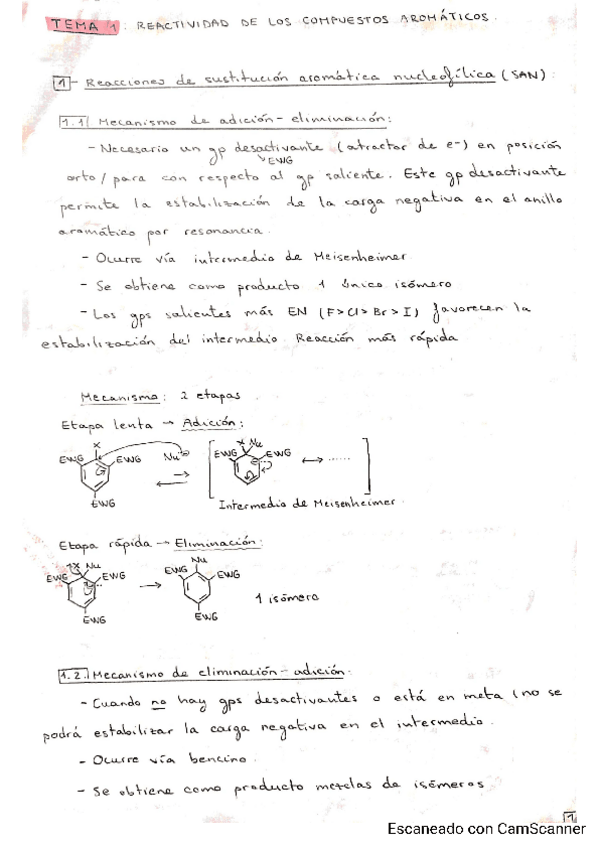 TEMA 1: REACTIVIDAD DE LOS COMPUESTOS AROMÁTICOS.
1- Reacciones de sustitución aromática nucleofílica (SAN)
1.1 Mecanismo de adición-eliminación:
- Necesario un gp desactivante (atractor de e-) en posición
EWG
orto/para con respecto al gp saliente. Este gp desactivante
permite la estabilización de la carga negativa en el anillo
aromático por resonancia.
- Ocurre vía intermedio de Meisenheimer
- Se obtiene como producto 1 único isómero
- Los gps salientes más EN (F>Cl>Br>I) favorecen la
estabilización del intermedio. Reacción más rápida
Mecanismo: 2 etapas
Etapa lenta → Adición:
X
EWG EWG Nu⊖
EWG
X Nu
EWG EWG ↔ ......
Intermedio de Meisenheimer
Etapa rápida → Eliminación:
X Nu
EWG EWG
EWG
Nu
EWG EWG
EWG
1 isómero
1.2. Mecanismo de eliminación-adición.
- Cuando no hay gps desactivantes o está en meta (no se
podrá estabilizar la carga negativa en el intermedio.
- Ocurre vía bencino.
- Se obtiene como producto mezclas de isómeros
1
Escaneado con CamScanner